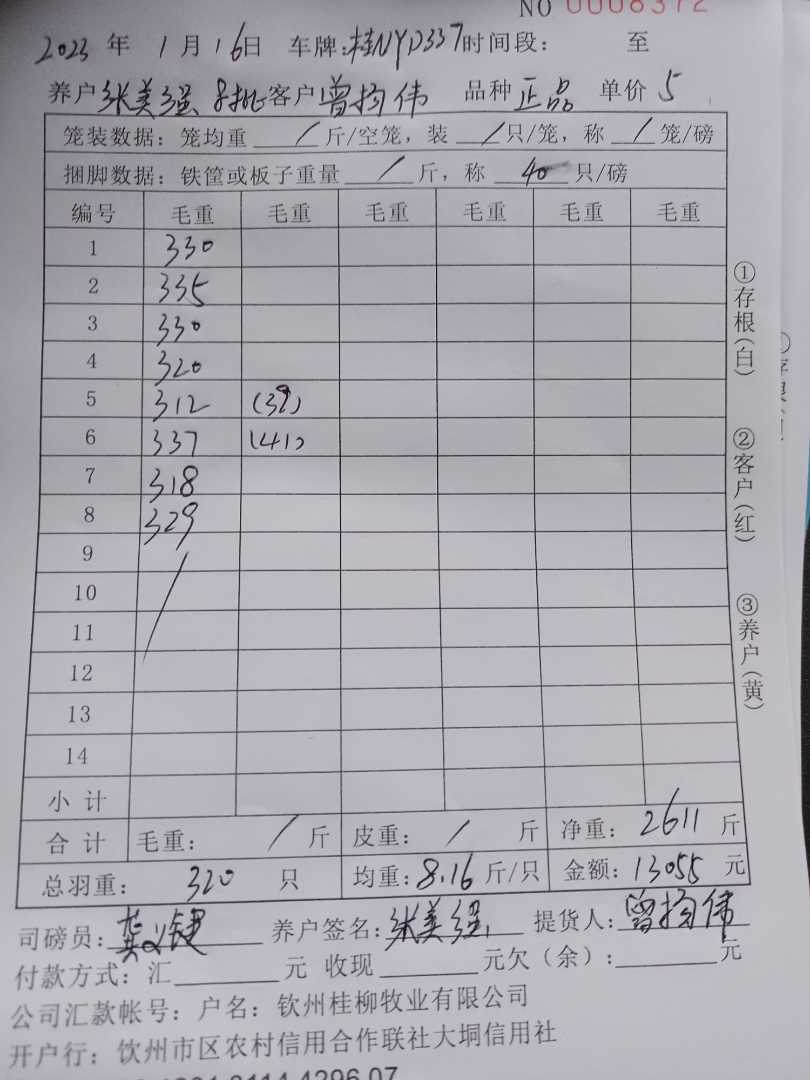 NO 0008372
2023 年 1 月 16 日 车牌:桂NYD337 时间段: 至
养户 张美强 客户 曾扬伟 品种 正品 单价 5
笼装数据:笼均重 / 斤/空笼,装 / 只/笼,称 / 笼/磅
捆脚数据:铁筐或板子重量 / 斤,称 40 只/磅
编号 毛重 毛重 毛重 毛重 毛重 毛重
1 330
2 335
3 330
4 320
5 312 (39)
6 337 (41)
7 318
8 329
9
10
11
12
13
14
小计
合计 毛重: / 斤 皮重: / 斤 净重: 2611 斤
总羽重: 320 只 均重: 8.16 斤/只 金额: 13055 元
司磅员: 养户签名: 张美强 提货人: 曾扬伟
付款方式:汇 元 收现 元欠(余): 元
公司汇款帐号:户名:钦州桂柳牧业有限公司
开户行:钦州市区农村信用合作联社大垌信用社
①存根(白)
②客户(红)
③养户(黄)